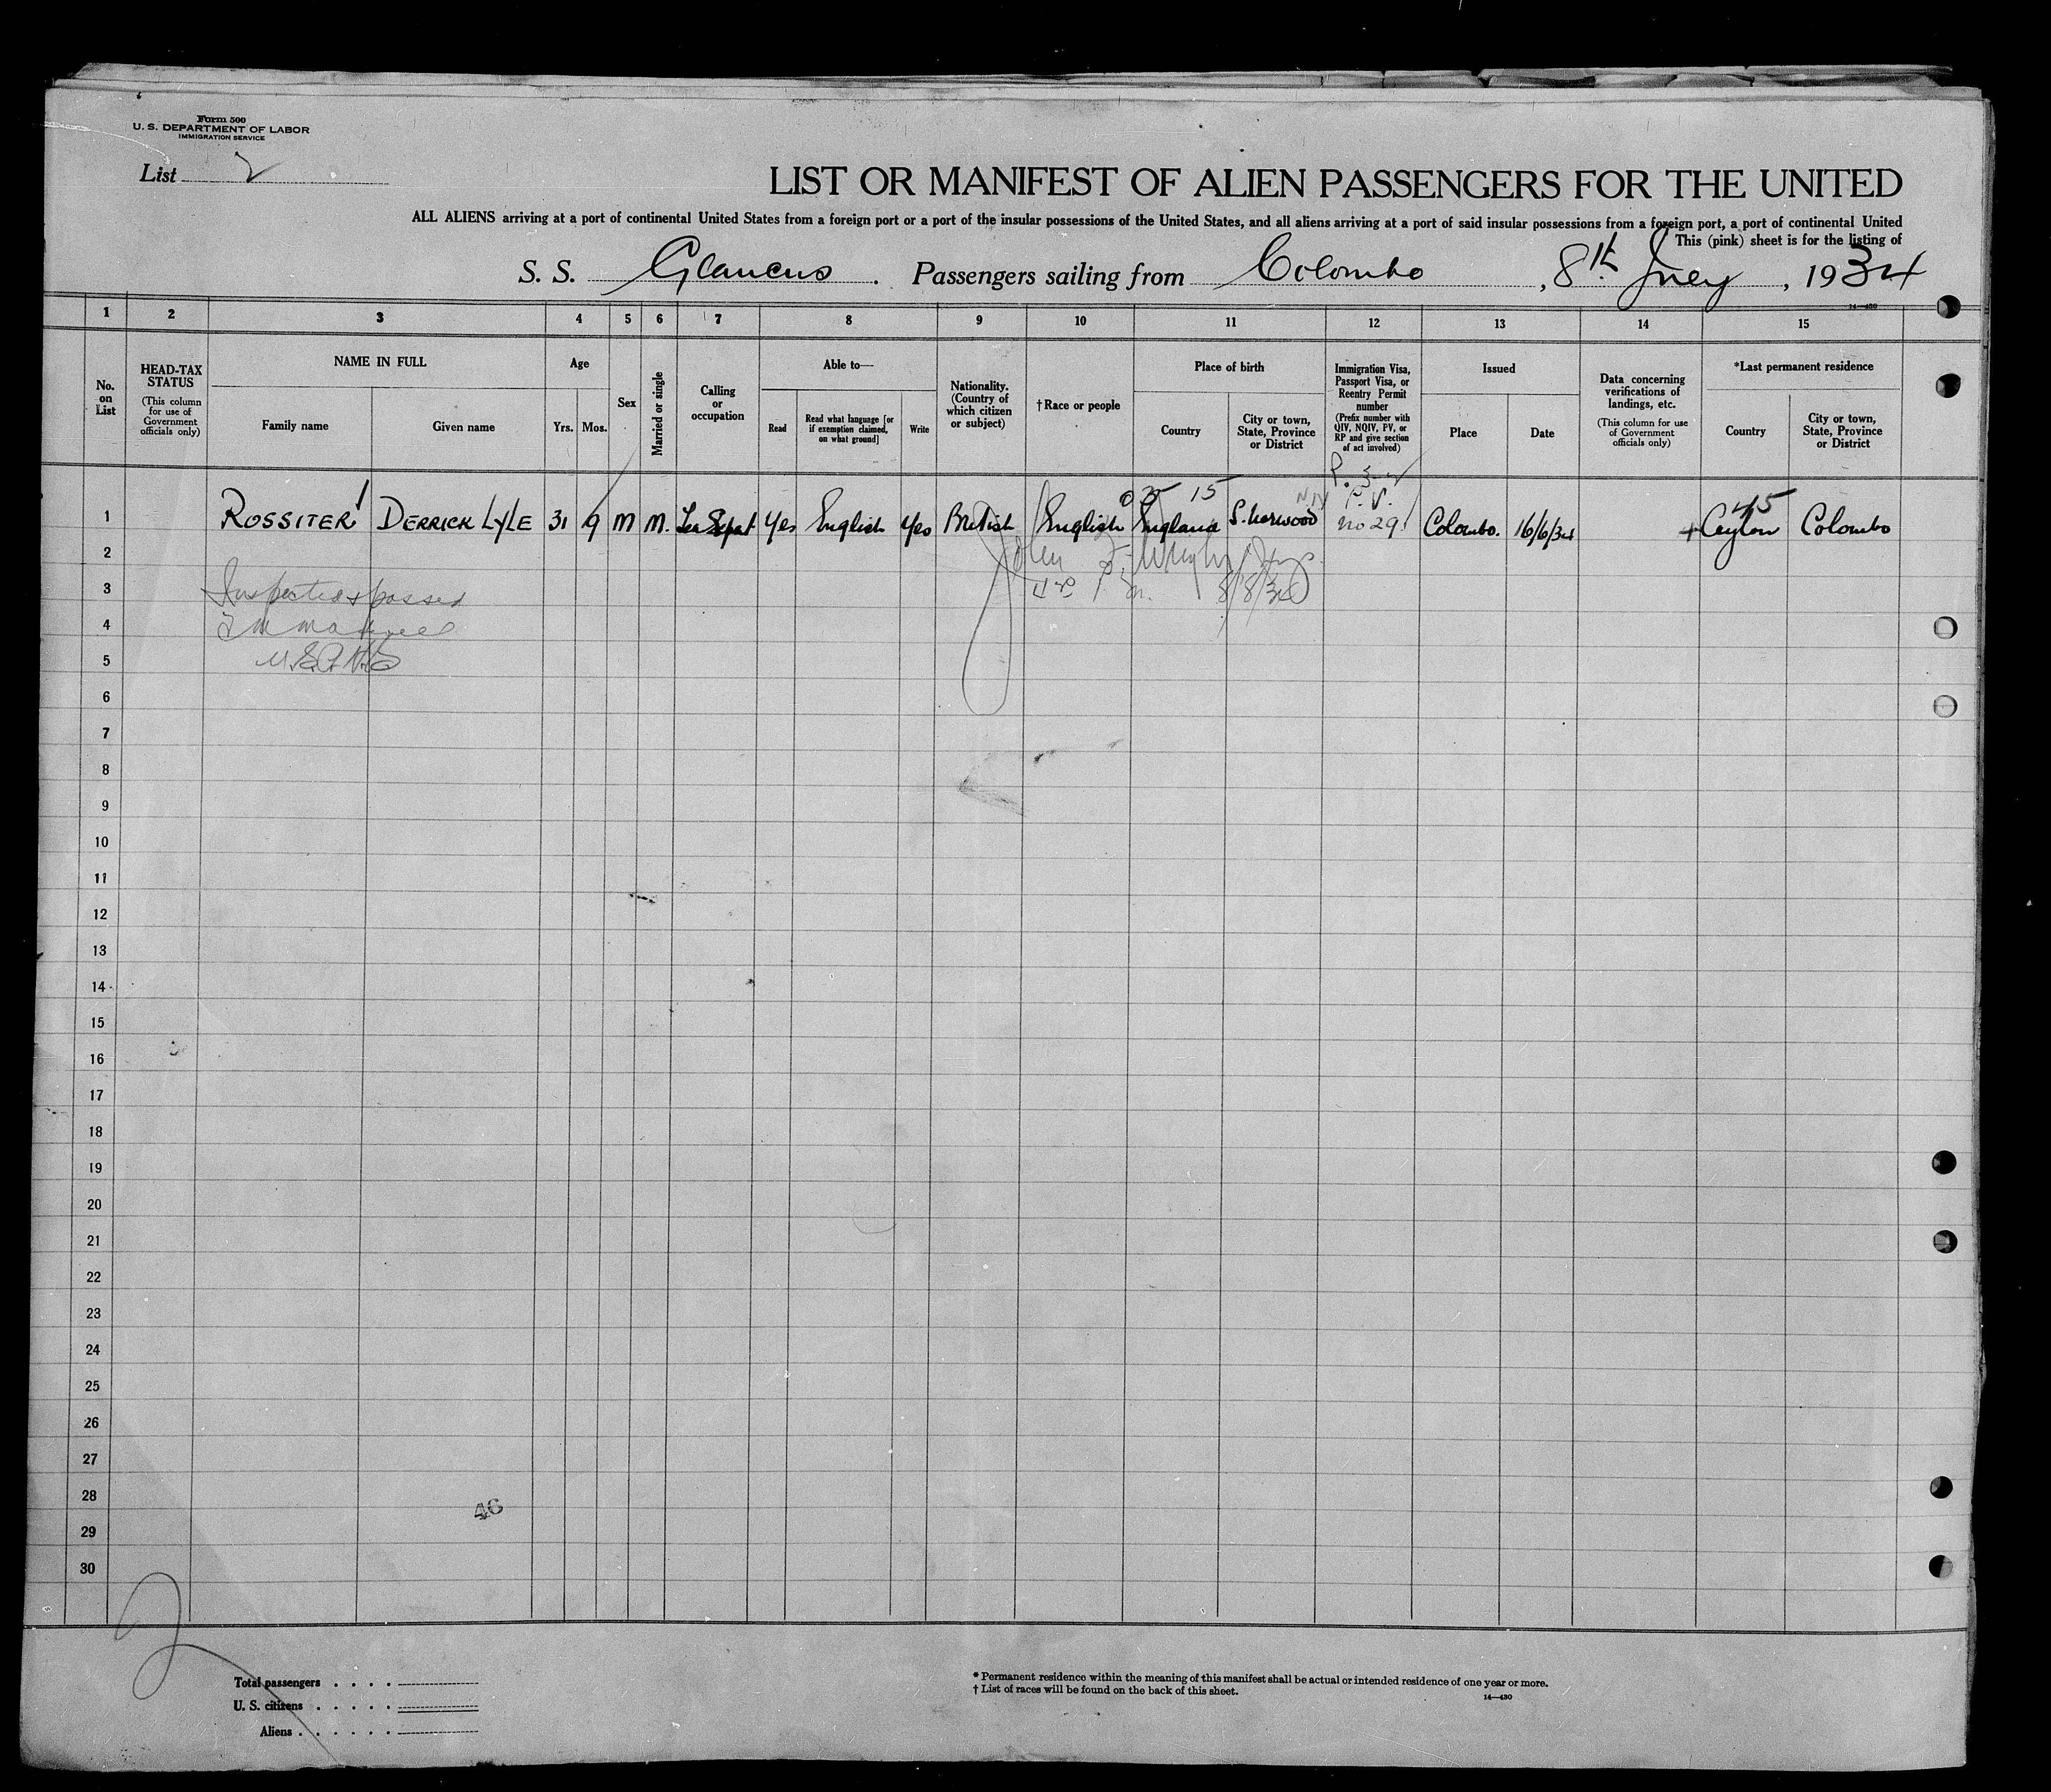 Form 500
U. S. DEPARTMENT OF LABOR
IMMIGRATION SERVICE
List 2
LIST OR MANIFEST OF ALIEN PASSENGERS FOR THE UNITED
ALL ALIENS arriving at a port of continental United States from a foreign port or a port of the insular possessions of the United States, and all aliens arriving at a port of said insular possessions from a foreign port, a port of continental United
This (pink) sheet is for the listing of
S. S. Glaucus. Passengers sailing from Colombo, 8th July, 1934
14—430
1 2 3 4 5 6 7 8 9 10 11 12 13 14 15
No. on List
HEAD-TAX STATUS (This column for use of Government officials only)
NAME IN FULL
Family name
Given name
Age
Yrs. Mos.
Sex
Married or single
Calling or occupation
Able to—
Read
Read what language [or if exemption claimed, on what ground]
Write
Nationality. (Country of which citizen or subject)
†Race or people
Place of birth
Country
City or town, State, Province or District
Immigration Visa, Passport Visa, or Reentry Permit number (Prefix number with QIV, NQIV, PV, or RP and give section of act involved)
Issued
Place
Date
Data concerning verifications of landings, etc. (This column for use of Government officials only)
*Last permanent residence
Country
City or town, State, Province or District
15 45
P. V.
1 ROSSITER DERRICK LYLE 31 9 M M. Tea Expert Yes English Yes British English England S. Norwood No 29 Colombo. 16/6/34 Ceylon Colombo
2
3 Inspected & passed 8/8/34
4
5
6
7
8
9
10
11
12
13
14
15
16
17
18
19
20
21
22
23
24
25
26
27
28
46
29
30
2
Total passengers
U. S. citizens
Aliens
* Permanent residence within the meaning of this manifest shall be actual or intended residence of one year or more.
† List of races will be found on the back of this sheet.
14—430